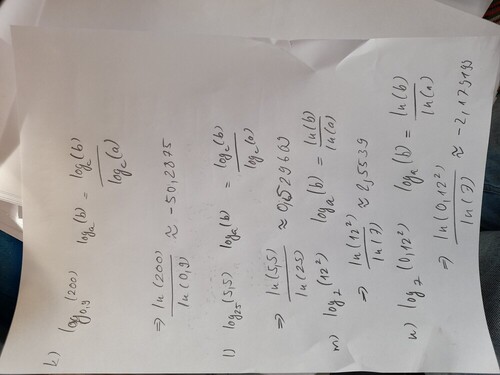 k) log₀,₉ (200) logₐ(b) = log_c(b) / log_c(a)
⇒ ln(200) / ln(0,9) ≈ -50,2875
l) log₂₅ (5,5) logₐ(b) = log_c(b) / log_c(a)
⇒ ln(5,5) / ln(25) ≈ 0,529600
m) log₇ (12²) logₐ(b) = ln(b) / ln(a)
⇒ ln(12²) / ln(7) ≈ 2,5539
n) log₇ (0,12²) logₐ(b) = ln(b) / ln(a)
⇒ ln(0,12²) / ln(7) ≈ -2,179199